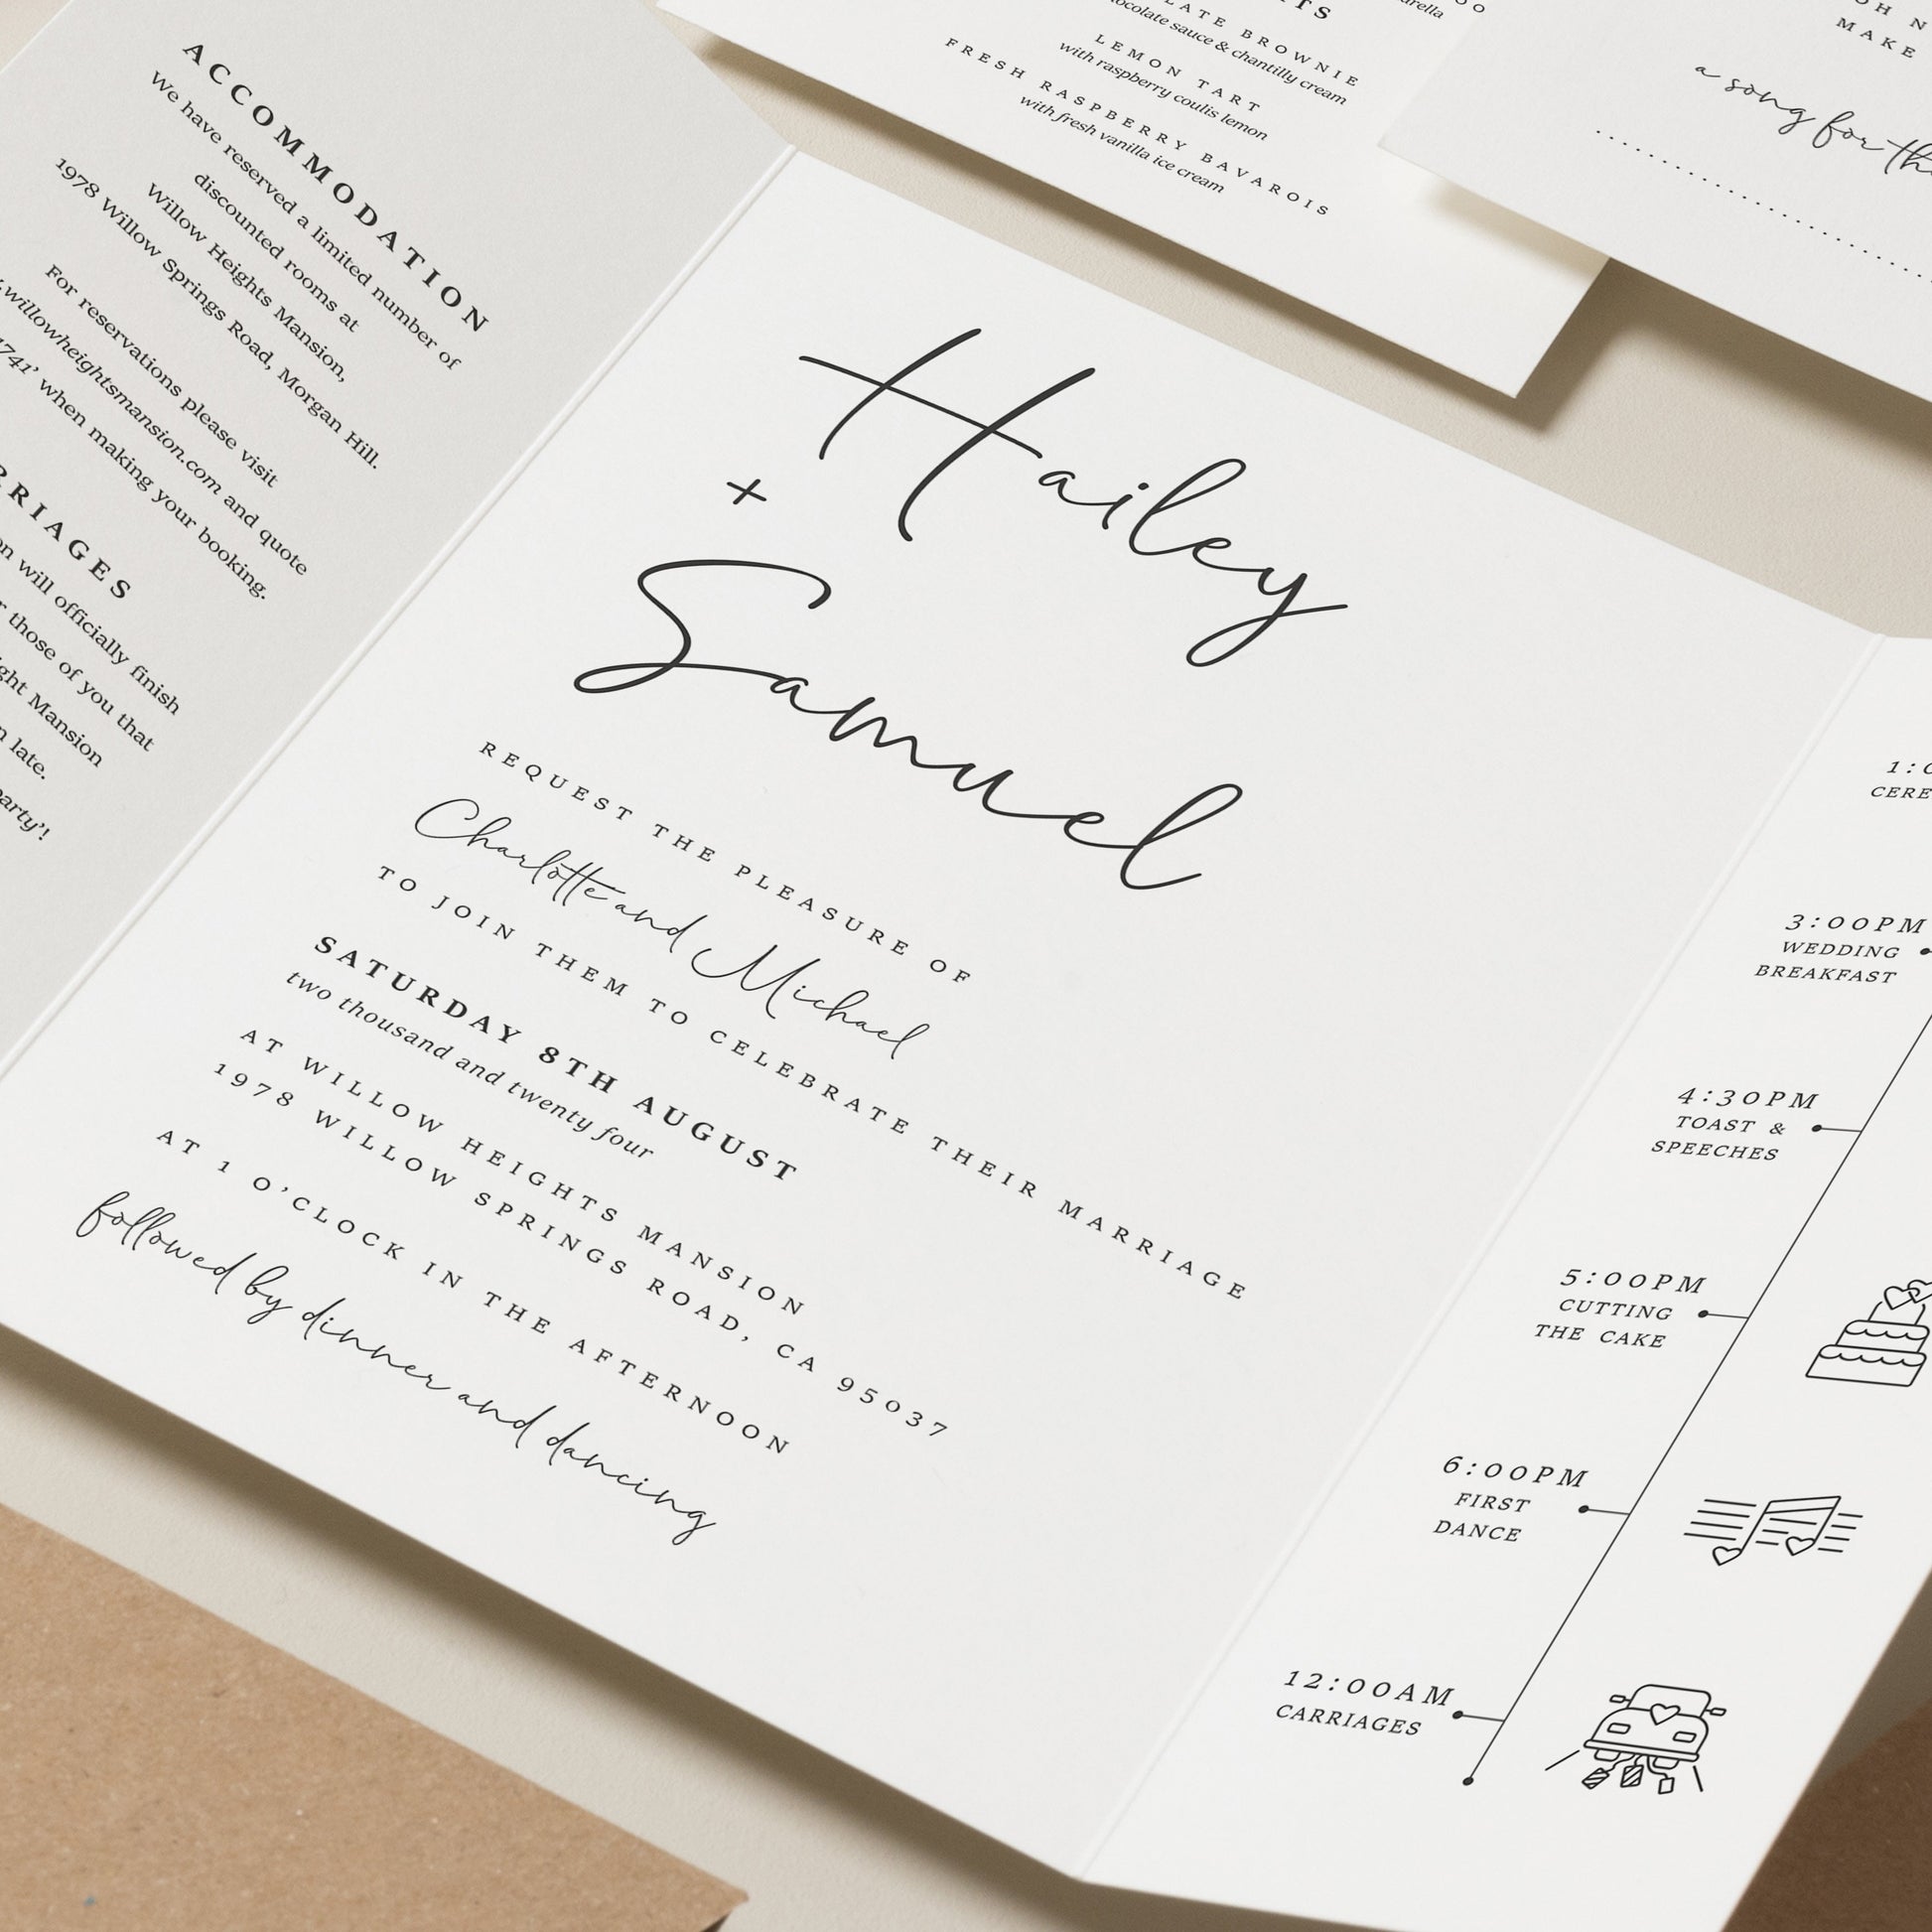 ACCOMMODATION
We have reserved a limited number of
discounted rooms at
Willow Heights Mansion,
1978 Willow Springs Road, Morgan Hill.
For reservations please visit
willowheightsmansion.com and quote
when making your booking.
will officially finish
those of you that
Mansion
late.
party'!
BROWNIE
chocolate sauce & chantilly cream
LEMON TART
with raspberry coulis lemon
FRESH RASPBERRY BAVAROIS
with fresh vanilla ice cream
MAKE
a song for the
Hailey
+
Samuel
REQUEST THE PLEASURE OF
Charlotte and Michael
TO JOIN THEM TO CELEBRATE THEIR MARRIAGE
SATURDAY 8TH AUGUST
two thousand and twenty four
AT WILLOW HEIGHTS MANSION
1978 WILLOW SPRINGS ROAD, CA 95037
AT 1 O'CLOCK IN THE AFTERNOON
followed by dinner and dancing
3:00PM
WEDDING
BREAKFAST
4:30PM
TOAST &
SPEECHES
5:00PM
CUTTING
THE CAKE
6:00PM
FIRST
DANCE
12:00AM
CARRIAGES